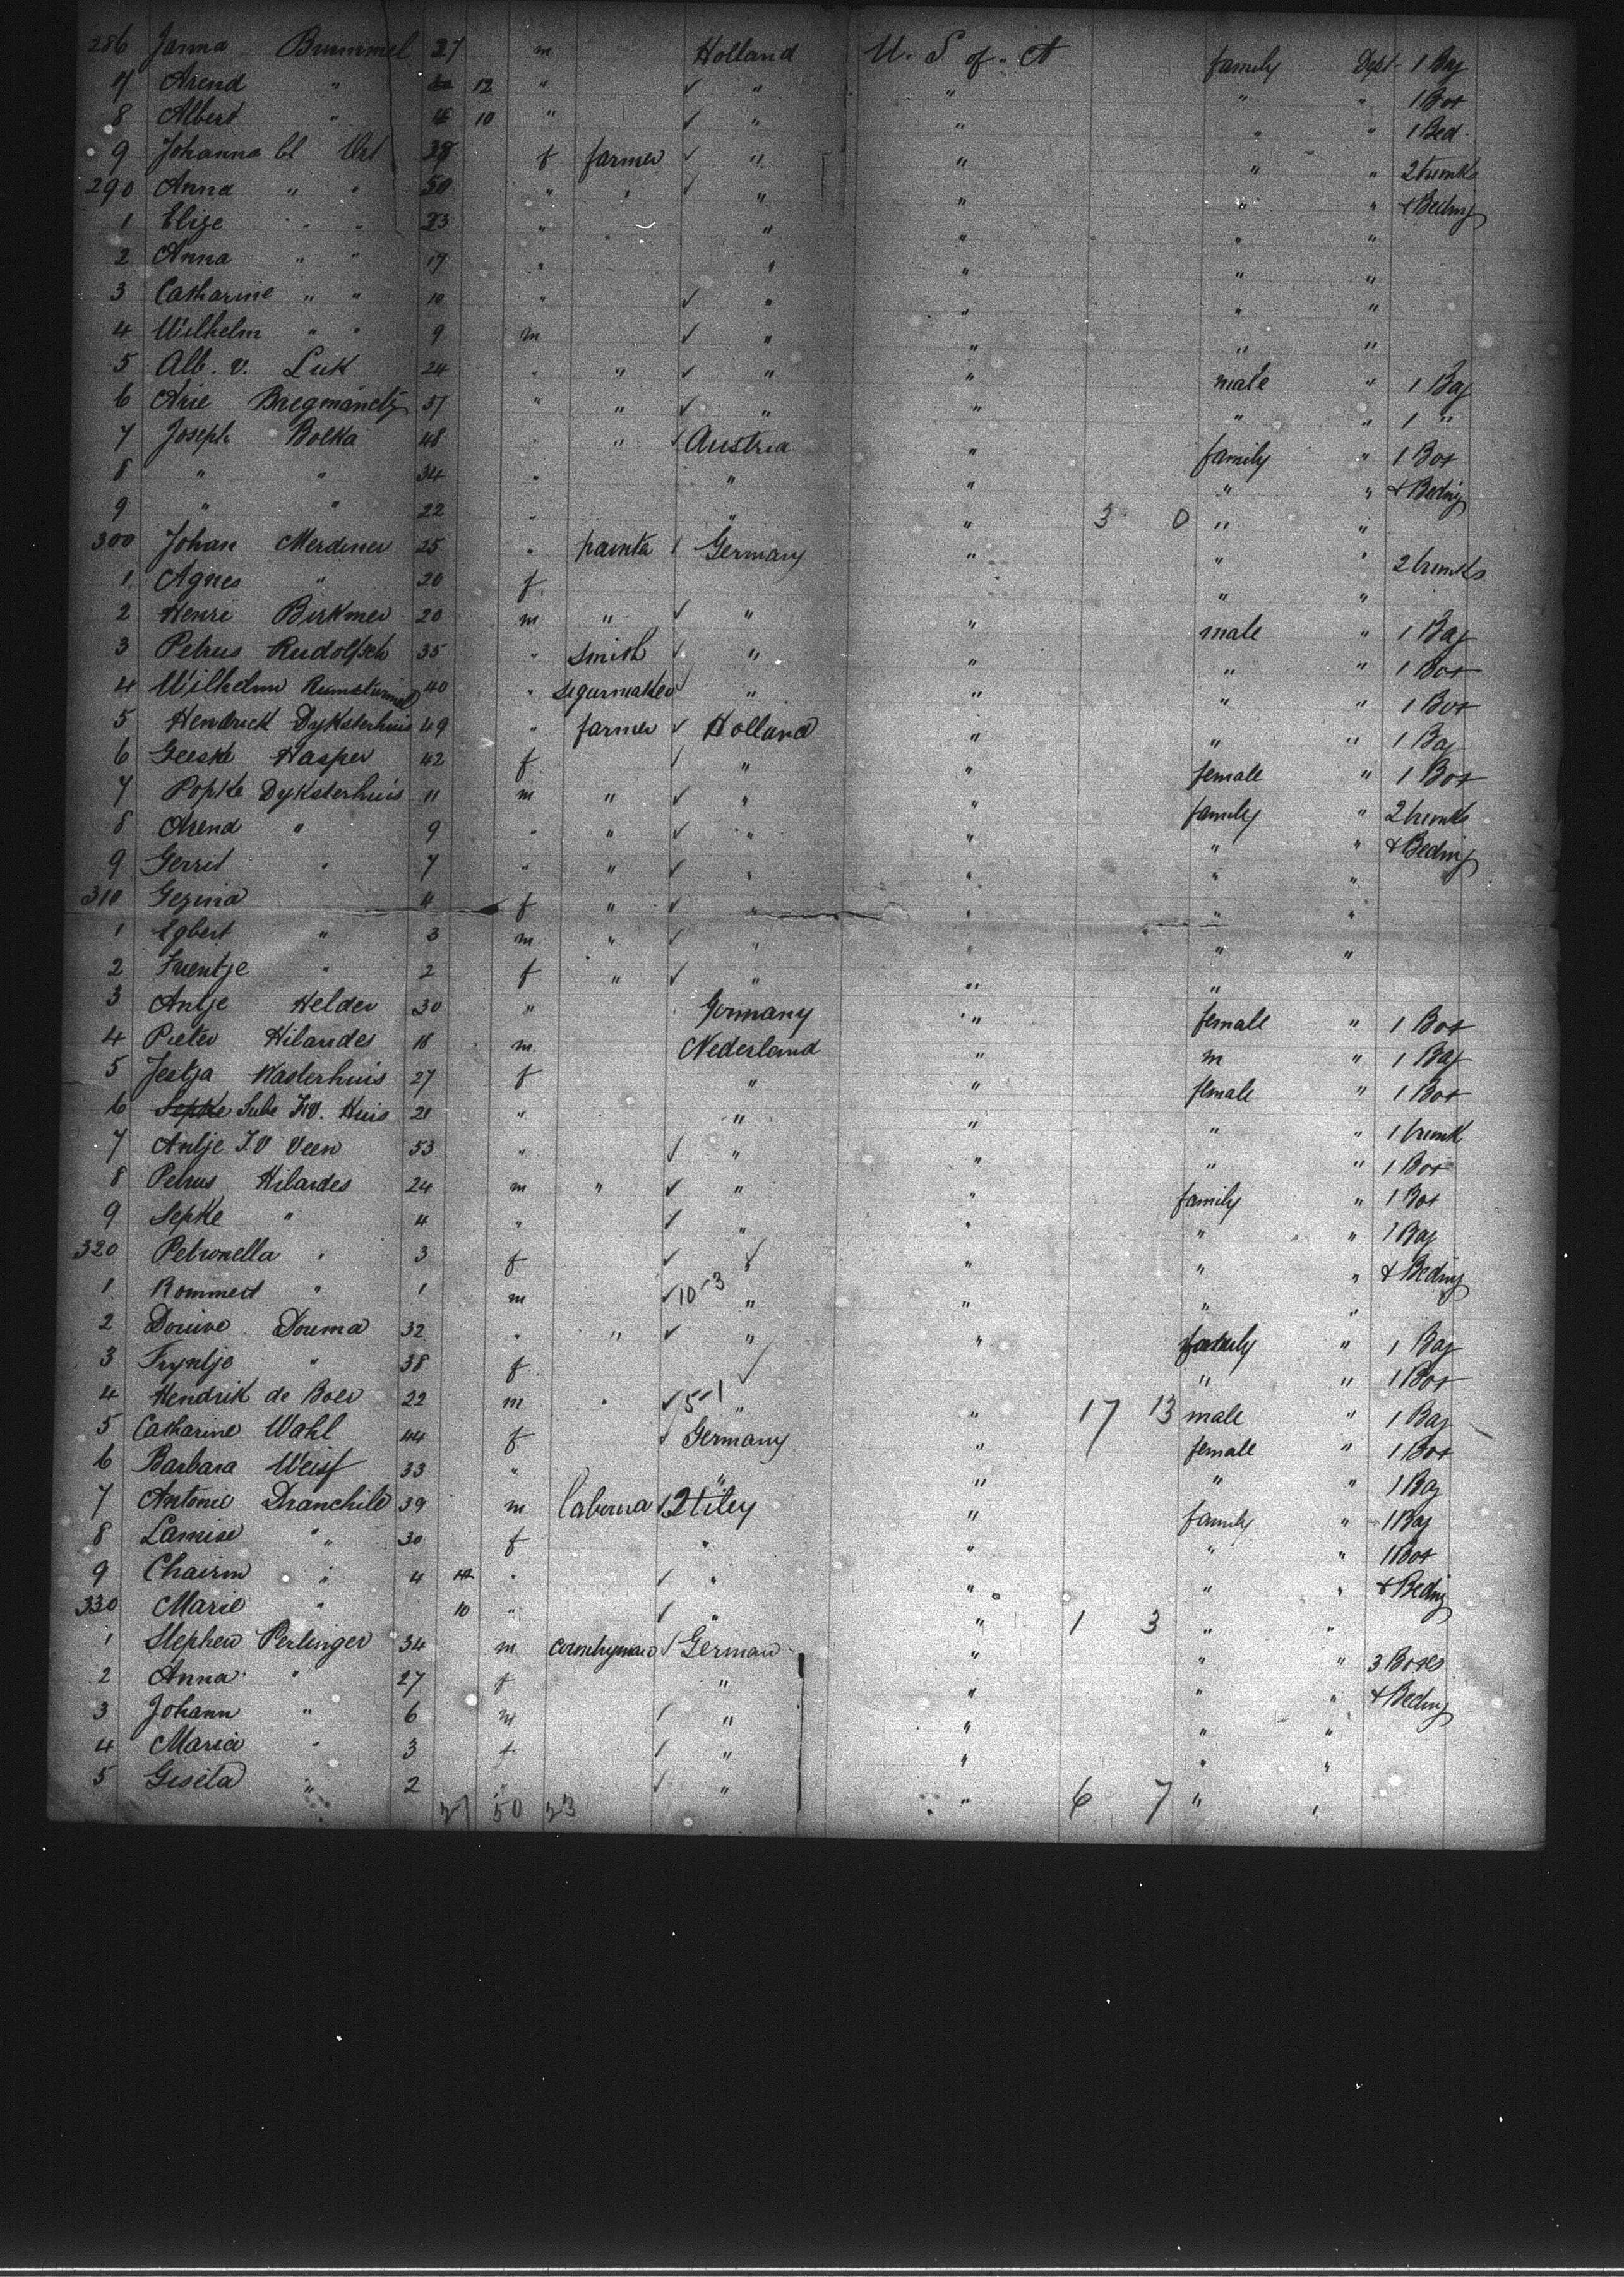 286 Janna Brummel 27 m Holland U. S. of A family Dept 1 Bag
7 Arend " 12 " " " " " 1 Box
8 Albert " 10 " " " " " 1 Bed
9 Johanna 28 f farmer " " " " 2 trunks
290 Anna " " 50 " " " " " " & Beding
1 Elize " " 23 " " " " "
2 Anna " " 17 " " " " "
3 Catharine " " 10 " " " " "
4 Wilhelm " " 9 m " " " "
5 Alb. v. Luk 24 " " " " male " 1 Bag
6 Arie 37 " " " " " " 1 "
7 Joseph Bolka 48 " " Austria " family " 1 Box
8 " " 34 " " " " " & Beding
9 " " 22 " " " 3 0 " "
300 Johan Merdener 25 " painter Germany " " " 2 trunks
1 Agnes " 20 f " "
2 Henri Birkmer 20 m " " " male " 1 Bag
3 Petrus Rudolfsch 35 " Smith " " " " 1 Box
4 Wilhelm 40 " segurmaker " " " 1 Box
5 Hendrick Dyksterhuis 49 " farmer Holland " " " 1 Bag
6 Geeske Hasper 42 f " " female " 1 Box
7 Popke Dyksterhuis 11 m " " " family " 2 trunks
8 Arend " 9 " " " " " " & Beding
9 Gerrit " 7 " " " " " "
310 Gezina 4 f " " " " "
1 Egbert " 3 m " " " " "
2 Trientje " 2 f " " " "
3 Antje Helder 30 " Germany " female " 1 Box
4 Pieter Hilandes 18 m Nederland " m " 1 Bag
5 Jestja Wasterhuis 27 f " " female " 1 Box
6 Huis 21 " " " " " 1 trunk
7 Antje I.V Veen 53 " " " " " 1 Box
8 Petrus Hilardes 24 m " " " family " 1 Box
9 Sepke " 4 " " " " " 1 Bag
320 Petronella " 3 f " " " & Beding
1 Rommert " 1 m 10-3 " " " "
2 Douwe Douma 32 " " " " family " 1 Bag
3 Tryntje " 38 f " " 1 Box
4 Hendrik de Boer 22 m " 5-1 " " 17 13 male " 1 Bag
5 Catharine Wahl 44 f Germany " female " 1 Box
6 Barbara Weiss 33 " " " " " 1 Bag
7 Antonie Dranchile 39 m 2 " family " 1 Bag
8 Lamise " 30 f " " " " 1 Box
9 Chairm " 4 " " " " " & Beding
330 Marie " 10 " " " 1 3 " "
1 Stephen Perlinger 34 m German " " " 3 Boxes
2 Anna " 27 f " " " " & Beding
3 Johann " 6 m " " " "
4 Maria " 3 f " " " "
5 Gisela " 2 " " " 6 7 " "
27 50 23